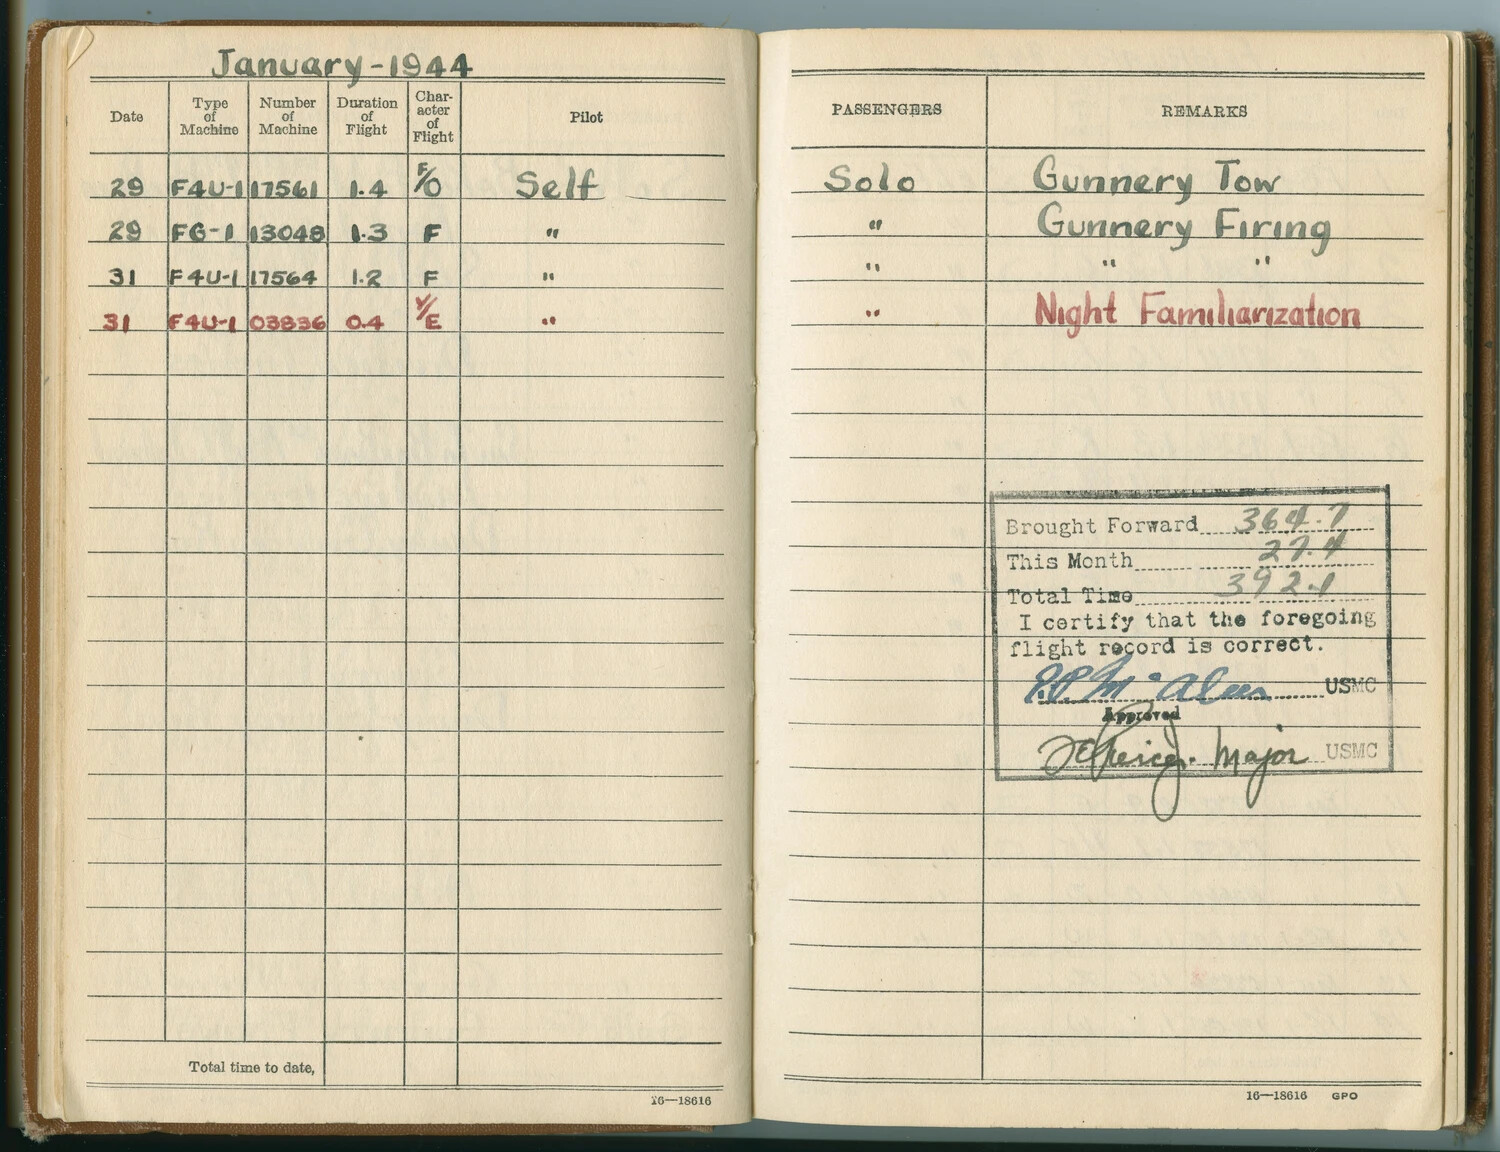 January-1944
Date Type of Machine Number of Machine Duration of Flight Char-acter of Flight Pilot PASSENGERS REMARKS
29 F4U-1 17561 1.4 F/O Self Solo Gunnery Tow
29 FG-1 13048 1.3 F " " Gunnery Firing
31 F4U-1 17564 1.2 F " " " "
31 F4U-1 03836 0.4 V/E " " Night Familiarization
Brought Forward 364.7
This Month 27.4
Total Time 392.1
I certify that the foregoing
flight record is correct.
McAleer USMC
Approved
Major USMC
Total time to date,
16—18616
16—18616 GPO